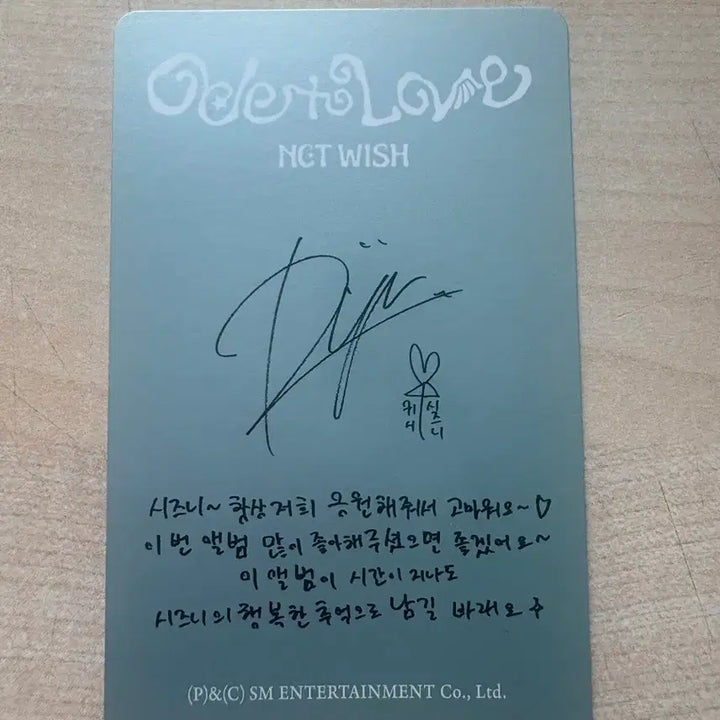 Ode to Love
NCT WISH
Riku
시즈니
시즈니~ 항상 저희 응원해줘서 고마워요~♡
이번 앨범 많이 좋아해주셨으면 좋겠어요~
이 앨범이 시간이 지나도
시즈니의 행복한 추억으로 남길 바래요
(P)&(C) SM ENTERTAINMENT Co., Ltd.